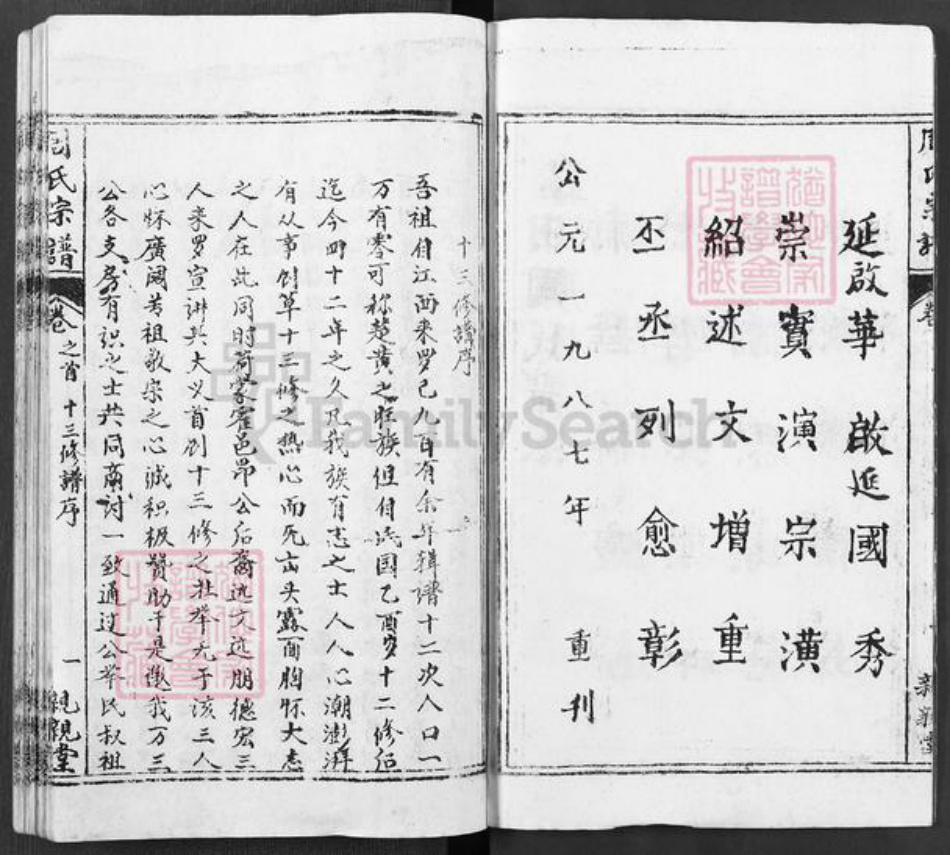 延啟華啟延國秀
崇實演宗潢
紹述文增重
丕丞列愈彰
公元一九八七年 重刊
周氏宗譜
卷之首 十三修譜序
一 親親堂
十三修譜序
吾祖自江西来罗已九百有余年辑谱十二次人口一
万有零可称楚黄之旺族但自民国乙酉岁十二修后
迄今四十二年之久凡我族有志之士人人心潮澎湃
有从事创草十三修之热心而无出头露面胸怀大志
之人在此同时荷蒙霍邑昂公后裔远文远朋德宏三
人来罗宣讲其大义首创十三修之壮举尤于该三人
心怀广阔其祖敬宗之心诚积极赞助于是激我万三
公各支房有识之士共同商讨一致通过公举民叔祖
FamilySearch